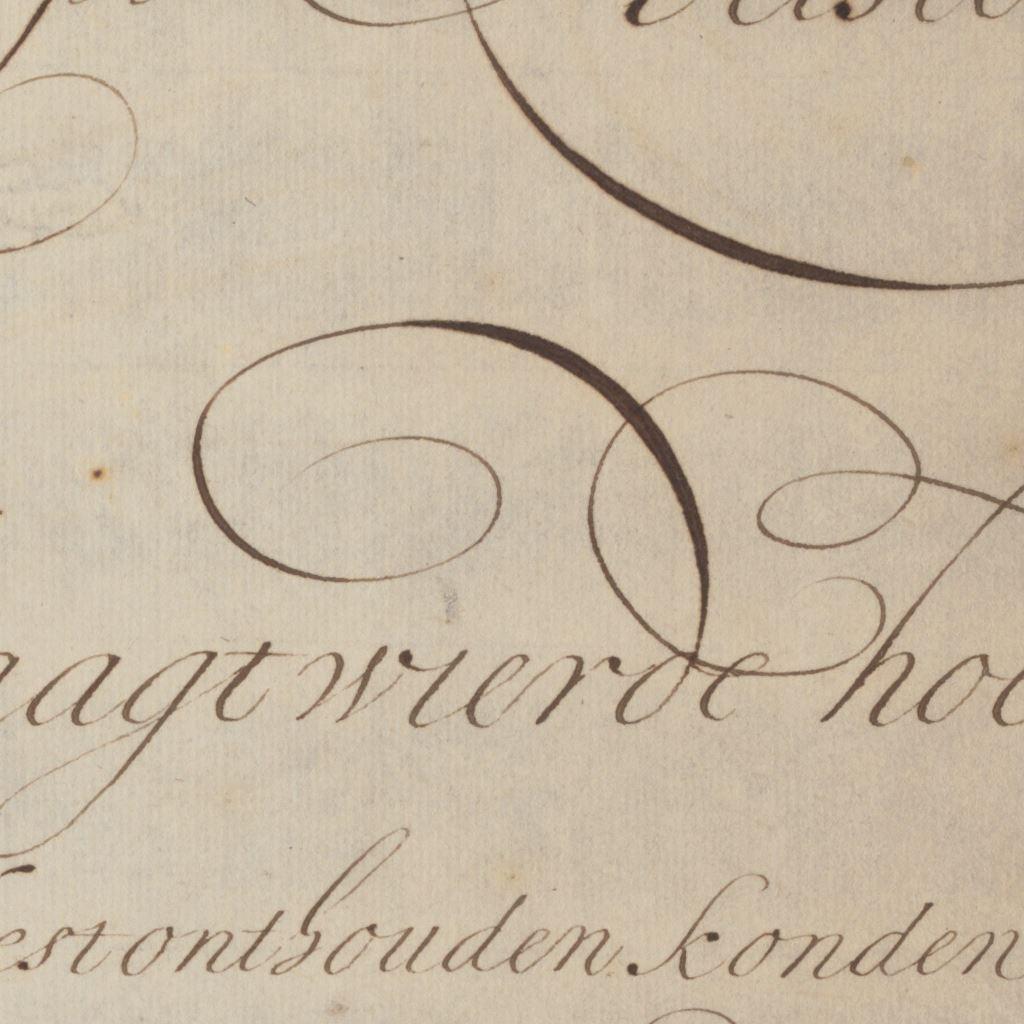 aagt wierde hoe
est onthouden konden